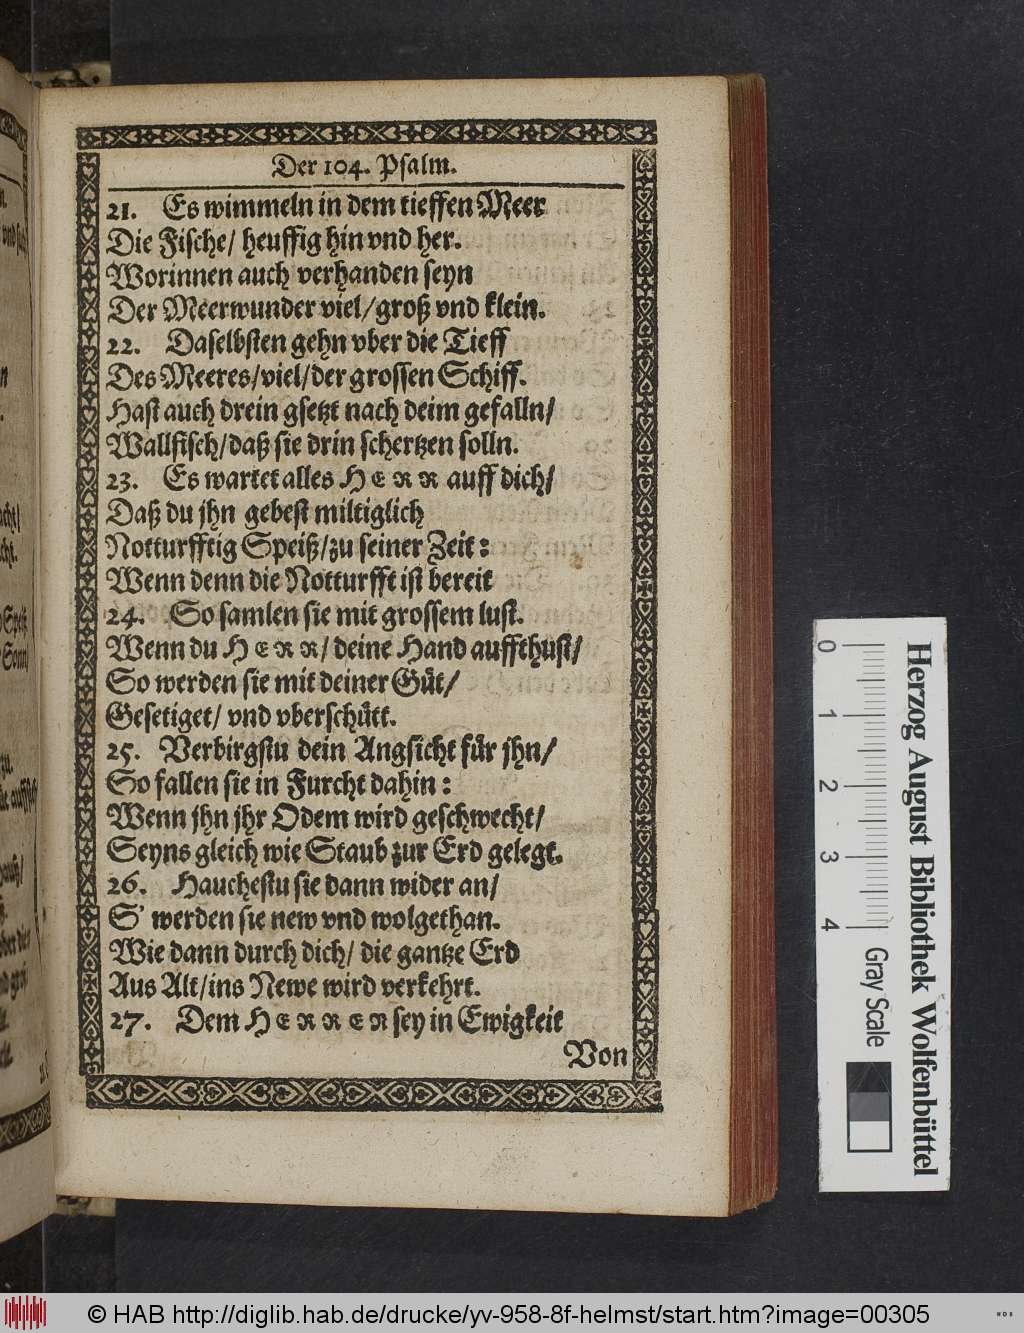 Der 104. Psalm.
21. Es wimmeln in dem tieffen Meer
Die Fische/ heuffig hin vnd her.
Worinnen auch verhanden seyn
Der Meerwunder viel/groß vnd klein.
22. Daselbsten gehn vber die Tieff
Des Meeres/viel/der grossen Schiff.
Hast auch drein gsetzt nach deim gefalln/
Wallfisch/daß sie drin schertzen solln.
23. Es wartet alles HERR auff dich/
Daß du jhn gebest miltiglich
Notturfftig Speiß/zu seiner Zeit:
Wenn denn die Notturfft ist bereit
24. So samlen sie mit grossem lust.
Wenn du HERR/ deine Hand auffthust/
So werden sie mit deiner Güt/
Gesetiget/ vnd vberschütt.
25. Verbirgstu dein Angsicht für jhn/
So fallen sie in Furcht dahin:
Wenn jhn jhr Odem wird geschwecht/
Seyns gleich wie Staub zur Erd gelegt.
26. Hauchestu sie dann wider an/
S' werden sie new vnd wolgethan.
Wie dann durch dich/ die gantze Erd
Aus Alt/ins Newe wird verkehrt.
27. Dem HERREN sey in Ewigkeit
Von
0 1 2 3 4
Herzog August Bibliothek Wolfenbüttel
Gray Scale
© HAB http://diglib.hab.de/drucke/yv-958-8f-helmst/start.htm?image=00305